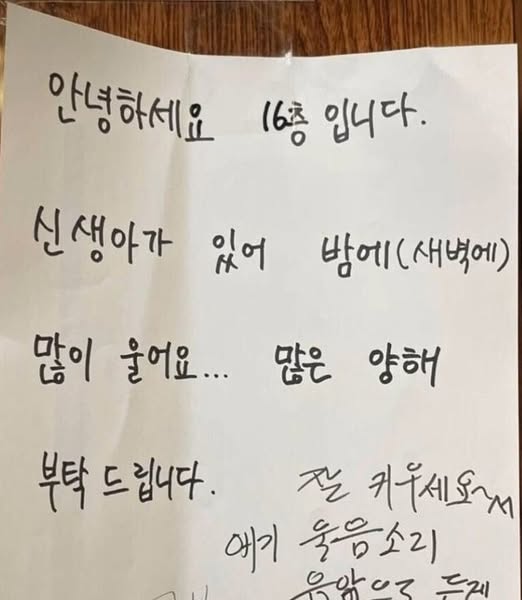 안녕하세요 16층 입니다.
신생아가 있어 밤에(새벽에)
많이 울어요... 많은 양해
부탁 드립니다.
잘 키우세요~
애기 울음소리